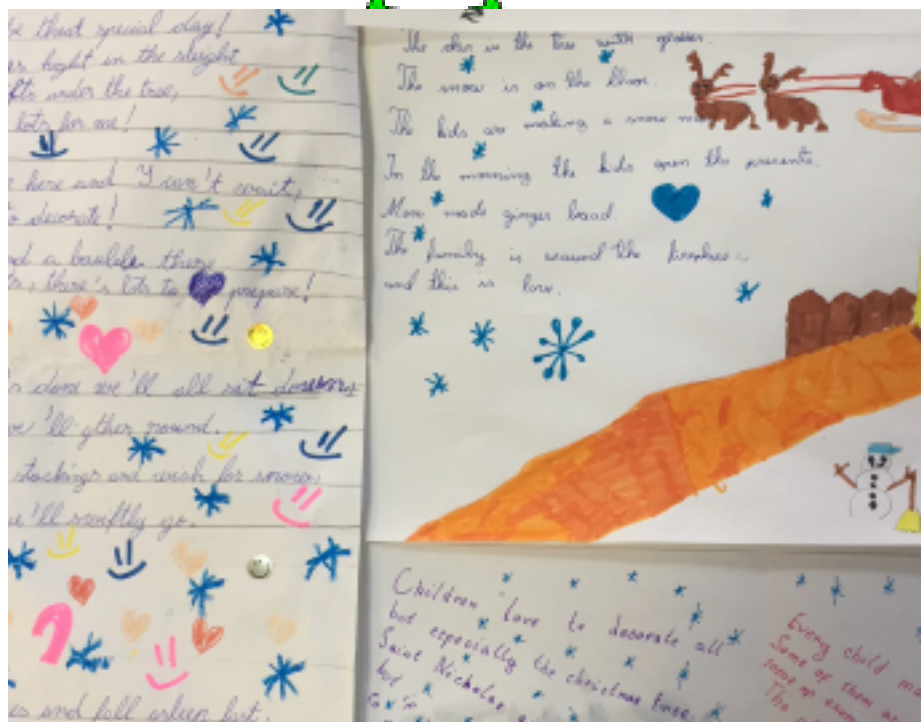 be that special day!
hight in the sleight
under the tree,
lots for me!
here and I can't wait,
decorate!
a bauble there
there's lots to prepare!
done we'll all sit down
we'll gther round.
stockings and wish for snow,
we'll swiftly go.
and fall asleep fast,
The star in the tree with glosses.
The snow is on the
The kids are making a snow
In the morning the kids open the presents.
Mom made ginger bread.
The family is around the
and this is love.
Children love to decorate all
but especially the christmas tree.
Saint Nicholas
but
Every child
Some of them
some of